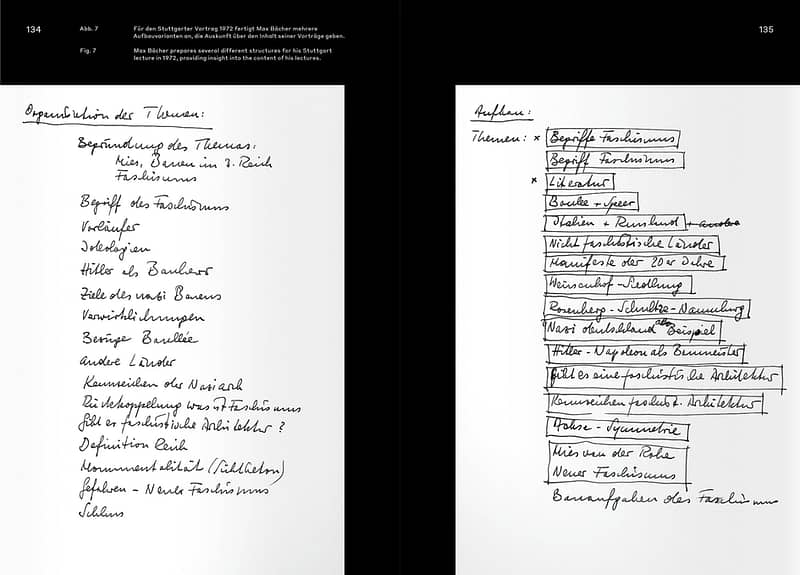 134
Abb. 7
Für den Stuttgarter Vortrag 1972 fertigt Max Bächer mehrere
Aufbauvarianten an, die Auskunft über den Inhalt seiner Vorträge geben.
Fig. 7
Max Bächer prepares several different structures for his Stuttgart
lecture in 1972, providing insight into the content of his lectures.
Organisation der Themen:
Begründung des Themas:
Mies, Bauen im 3. Reich
Faschismus
Begriff des Faschismus
Vorläufer
Ideologien
Hitler als Bauherr
Ziele des nazi Bauens
Verwirklichungen
Bezüge Boullée
andere Länder
Kennzeichen der Naziarch
Rückkoppelung was ist Faschismus
Gibt es faschistische Architektur?
Definition Reich
Monumentalität (Sichtbeton)
Gefahren - Neuer Faschismus
Schluss
135
Aufbau:
Themen: x Begriffe Faschismus
Begriff Faschismus
x Literatur
Boulee + Speer
Italien + Russland + andere
Nicht faschistische Länder
Manifeste der 20er Jahre
Weissenhof-Siedlung
Rosenberg - Schultze-Naumburg
Nazi deutschland als Beispiel
Hitler - Napoleon als Baumeister
Gibt es eine faschistische Architektur
Kennzeichen faschist. Architektur
Achse - Symmetrie
Mies van der Rohe
Neuer Faschismus
Bauaufgaben des Faschismus